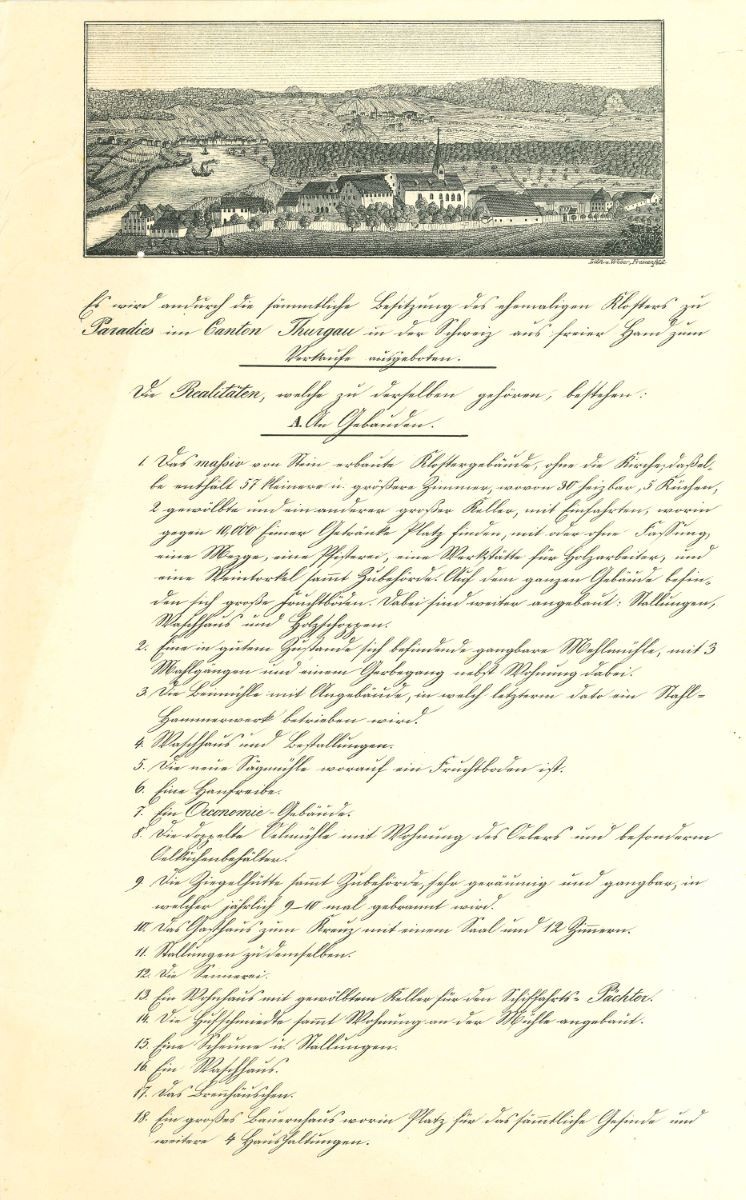 Lith. v. Weber, Frauenfeld.
Es wird andurch die sämmtliche Besitzung des ehemaligen Klosters zu
Paradies im Canton Thurgau in der Schweiz aus freier Hand zum
Verkaufe ausgeboten.
Die Realitäten, welche zu derselben gehören, bestehen:
A. An Gebäuden.
1. Das massiv von Stein erbaute Klostergebäude, ohne die Kirche, daßel-
be enthält 57 kleinere u. größere Zimmer, wovon 30 heizbar, 5 Küchen,
2 gewölbte und ein anderer großer Keller, mit Einfahrten, worin
gegen 10,000 Eimer Getränke Platz finden, mit oder ohne Fassung,
eine Mezge, eine Pfisterei, eine Werkstätte für Holzarbeiter, und
eine Weintorkel sammt Zubehörde. Auf dem ganzen Gebäude befin-
den sich große Fruchtböden. Dabei sind weiter angebaut: Stallungen,
Waschhaus und Holzschoppen.
2. Eine in gutem Zustande sich befindende gangbare Mehlmühle, mit 3
Mahlgängen und einem Gerbegang nebst Wohnung dabei.
3. Die Beinmühle mit Angebäude, in welch letzterm dato ein Stahl-
Hammerwerk betrieben wird.
4. Waschhaus und Bestallungen.
5. Die neue Sägmühle worauf ein Fruchtboden ist.
6. Eine Hanfreibe.
7. Ein Oeconomie-Gebäude.
8. Die doppelte Oelmühle mit Wohnung des Oelers und besonderm
Oelkuchenbehälter.
9. Die Ziegelhütte sammt Zubehörde, sehr geräumig und gangbar, in
welcher jährlich 9-10 mal gebrannt wird.
10. Das Gasthaus zum Kreuz mit einem Saal und 12 Zimmern.
11. Stallungen zu demselben.
12. Die Sennerei.
13. Ein Wohnhaus mit gewölbtem Keller für den Schiffahrts-Pächter.
14. Die Hufschmiedte sammt Wohnung an der Mühle angebaut.
15. Eine Scheune u. Stallungen.
16. Ein Waschhaus.
17. Das Brenhäuschen.
18. Ein großes Bauernhaus worin Platz für das sämmtliche Gesinde und
weitere 4 Haushaltungen.